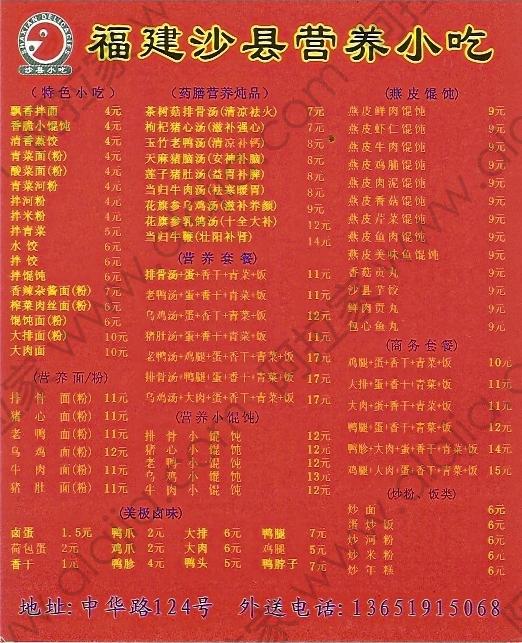 SHAXIAN DELICACIES
沙县小吃
福建沙县营养小吃
(特色小吃)
飘香拌面 4元
香脆小馄饨 4元
清香蒸饺 4元
青菜面(粉) 4元
酸菜面(粉) 4元
青菜河粉 4元
拌河粉 4元
拌米粉 4元
拌青菜 5元
水饺 6元
拌饺 6元
拌馄饨 6元
香辣杂酱面(粉) 7元
榨菜肉丝面(粉) 6元
馄饨面(粉) 6元
大排面(粉) 10元
大肉面 10元
(营养面/粉)
排骨面(粉) 11元
猪心面(粉) 11元
老鸭面(粉) 11元
乌鸡面(粉) 12元
牛肉面(粉) 11元
猪肚面(粉) 11元
(药膳营养炖品)
茶树菇排骨汤(清凉祛火) 7元
枸杞猪心汤(滋补强心) 7元
玉竹老鸭汤(清凉补钙) 8元
天麻猪脑汤(安神补脑) 8元
莲子猪肚汤(益胃补脾) 8元
当归牛肉汤(祛寒暖胃) 8元
花旗参乌鸡汤(滋补养颜) 9元
花旗参乳鸽汤(十全大补) 12元
当归牛鞭(壮阳补肾) 14元
(营养套餐)
排骨汤+蛋+香干+青菜+饭 11元
老鸭汤+蛋+香干+青菜+饭 11元
乌鸡汤+蛋+香干+青菜+饭 12元
猪肚汤+蛋+香干+青菜+饭 11元
老鸭汤+鸡腿+蛋+香干+青菜+饭 17元
排骨汤+鸭腿+蛋+香干+青菜+饭 17元
乌鸡汤+大肉+蛋+香干+青菜+饭 17元
(营养小馄饨)
排骨小馄饨 12元
猪心小馄饨 12元
老鸭小馄饨 12元
乌鸡小馄饨 13元
牛肉小馄饨 12元
(燕皮馄饨)
燕皮鲜肉馄饨 9元
燕皮虾仁馄饨 9元
燕皮牛肉馄饨 9元
燕皮鸡脯馄饨 9元
燕皮肉泥馄饨 9元
燕皮香菇馄饨 9元
燕皮芹菜馄饨 9元
燕皮鱼肉馄饨 9元
燕皮美味鱼馄饨 9元
香菇贡丸 9元
沙县芋饺 9元
鲜肉贡丸 9元
包心鱼丸 9元
(商务套餐)
鸡腿+蛋+香干+青菜+饭 10元
大排+蛋+香干+青菜+饭 11元
大肉+蛋+香干+青菜+饭 11元
鸭腿+蛋+香干+青菜+饭 12元
鸭胗+大肉+蛋+香干+青菜+饭 14元
鸡腿+大肉+蛋+香干+青菜+饭 15元
(炒粉、饭类)
炒面 6元
蛋炒饭 6元
炒河粉 6元
炒米粉 6元
炒年糕 6元
(美极卤味)
卤蛋 1.5元 鸭爪 2元 大排 6元 鸭腿 7元
荷包蛋 2元 鸡爪 2元 大肉 6元 鸡腿 5元
香干 1元 鸭胗 4元 鸭头 5元 鸭脖子 7元
地址: 中华路124号 外送电话: 13651915068